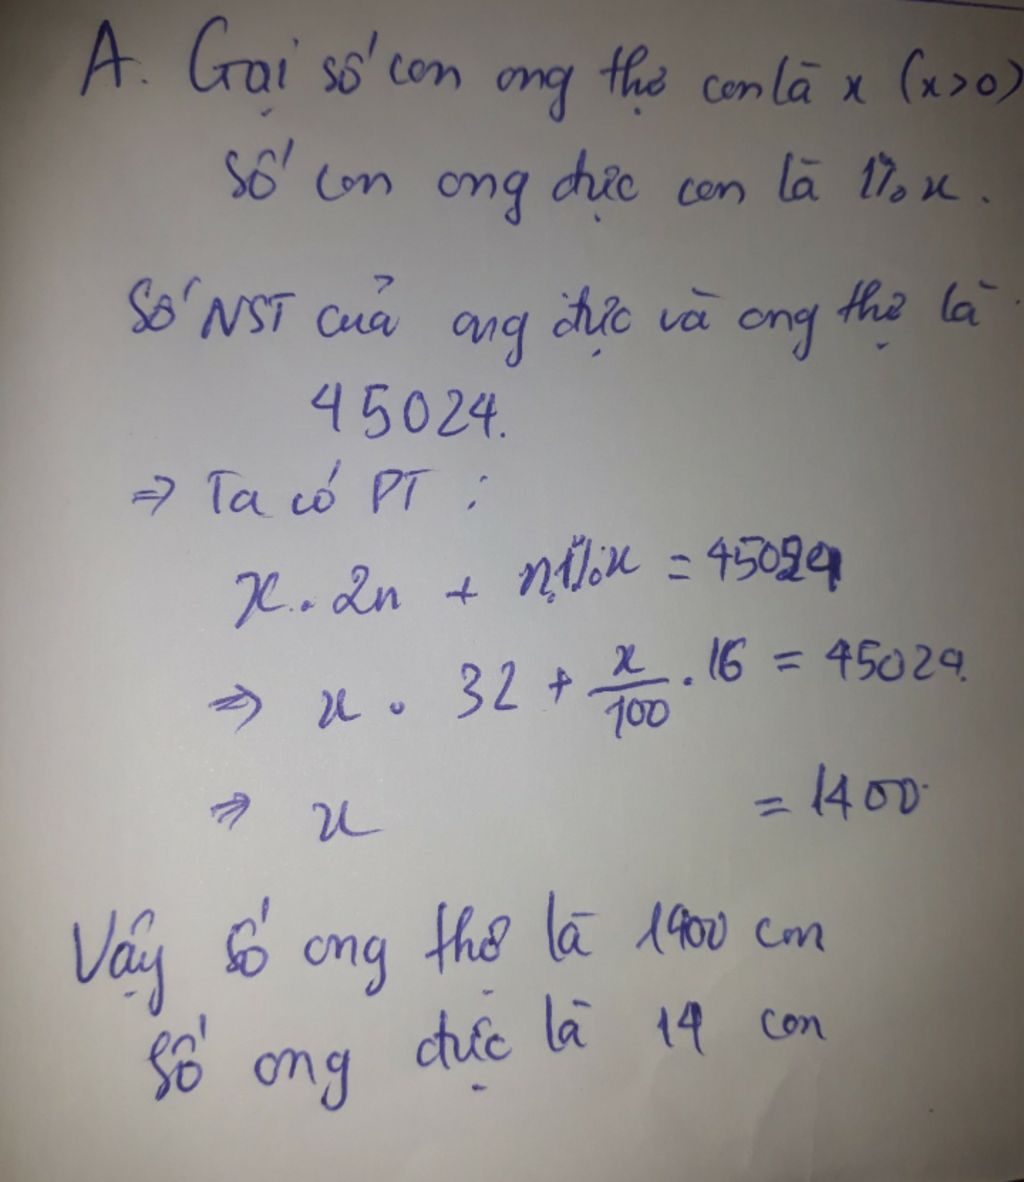 A. Gọi số con ong thợ con là x (x>0)
Số con ong đực con là 1% x.
Số NST của ong đực và ong thợ là
45024.
=> Ta có PT :
x. 2n + n.1%x = 45024
=> x . 32 + x/100 . 16 = 45024.
=> x = 1400
Vậy số ong thợ là 1400 con
số ong đực là 14 con